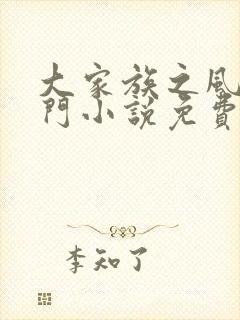 大家族之風
門小說免費
李知了